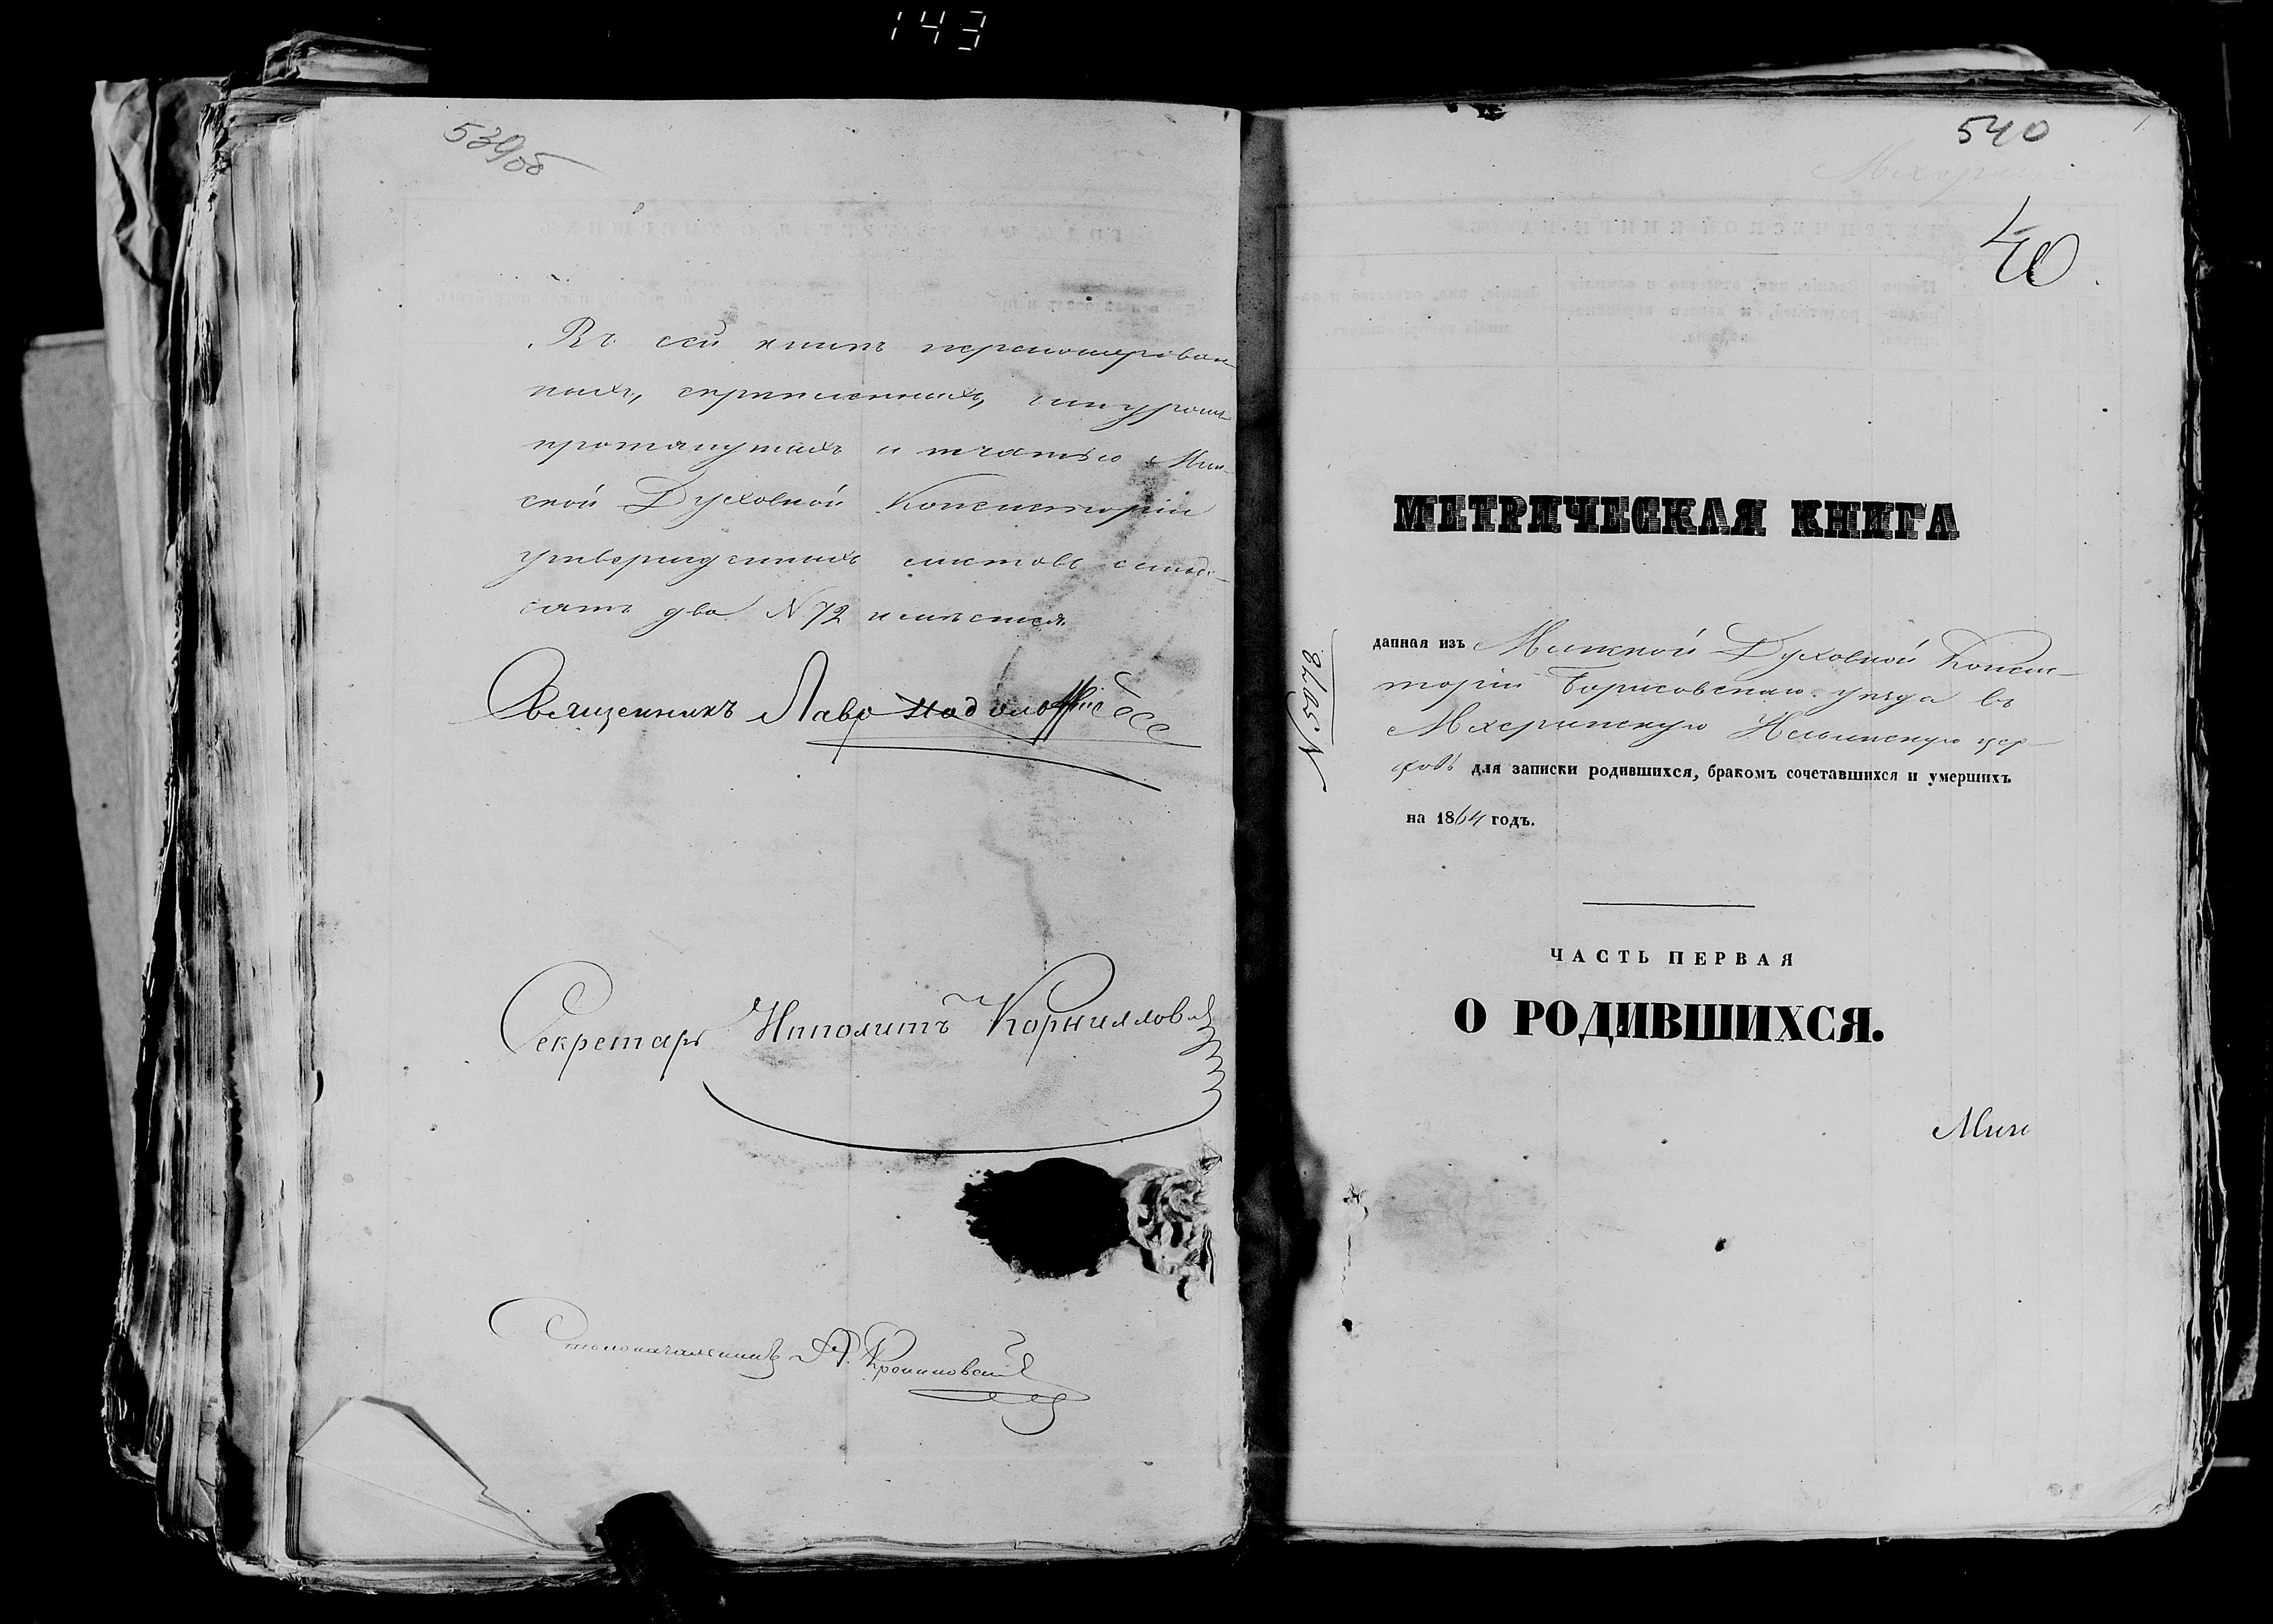 143
539об
Въ сей книгѣ перенумерован-
ныхъ, скрѣпленныхъ, шнуромъ
протянутыхъ и печатью Мин-
ской Духовной Консисторіи
утвержденныхъ листовъ семьде-
сятъ два N 72 имѣется.
Священникъ
Секретарь Ипполитъ Корниллов
Столоначальникъ А.
540
40
N 5078
МЕТРИЧЕСКАЯ КНИГА
данная изъ Минской Духовной Конси-
сторіи Борисовскаго уѣзда въ
Мхеринскую Ильинскую цер-
ковь для записки родившихся, бракомъ сочетавшихся и умершихъ
на 1864 годъ.
ЧАСТЬ ПЕРВАЯ
О РОДИВШИХСЯ.
Мин